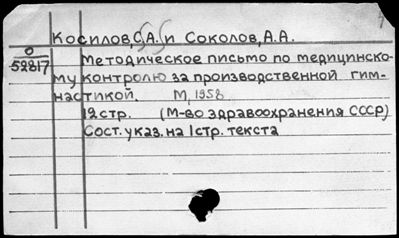 Косилов, С.А. и Соколов, А.А.
О
52817
Методическое письмо по медицинско-
му контролю за производственной гим-
настикой. М, 1958
12стр. (М-во здравоохранения СССР)
Сост. указ. на 1 стр. текста